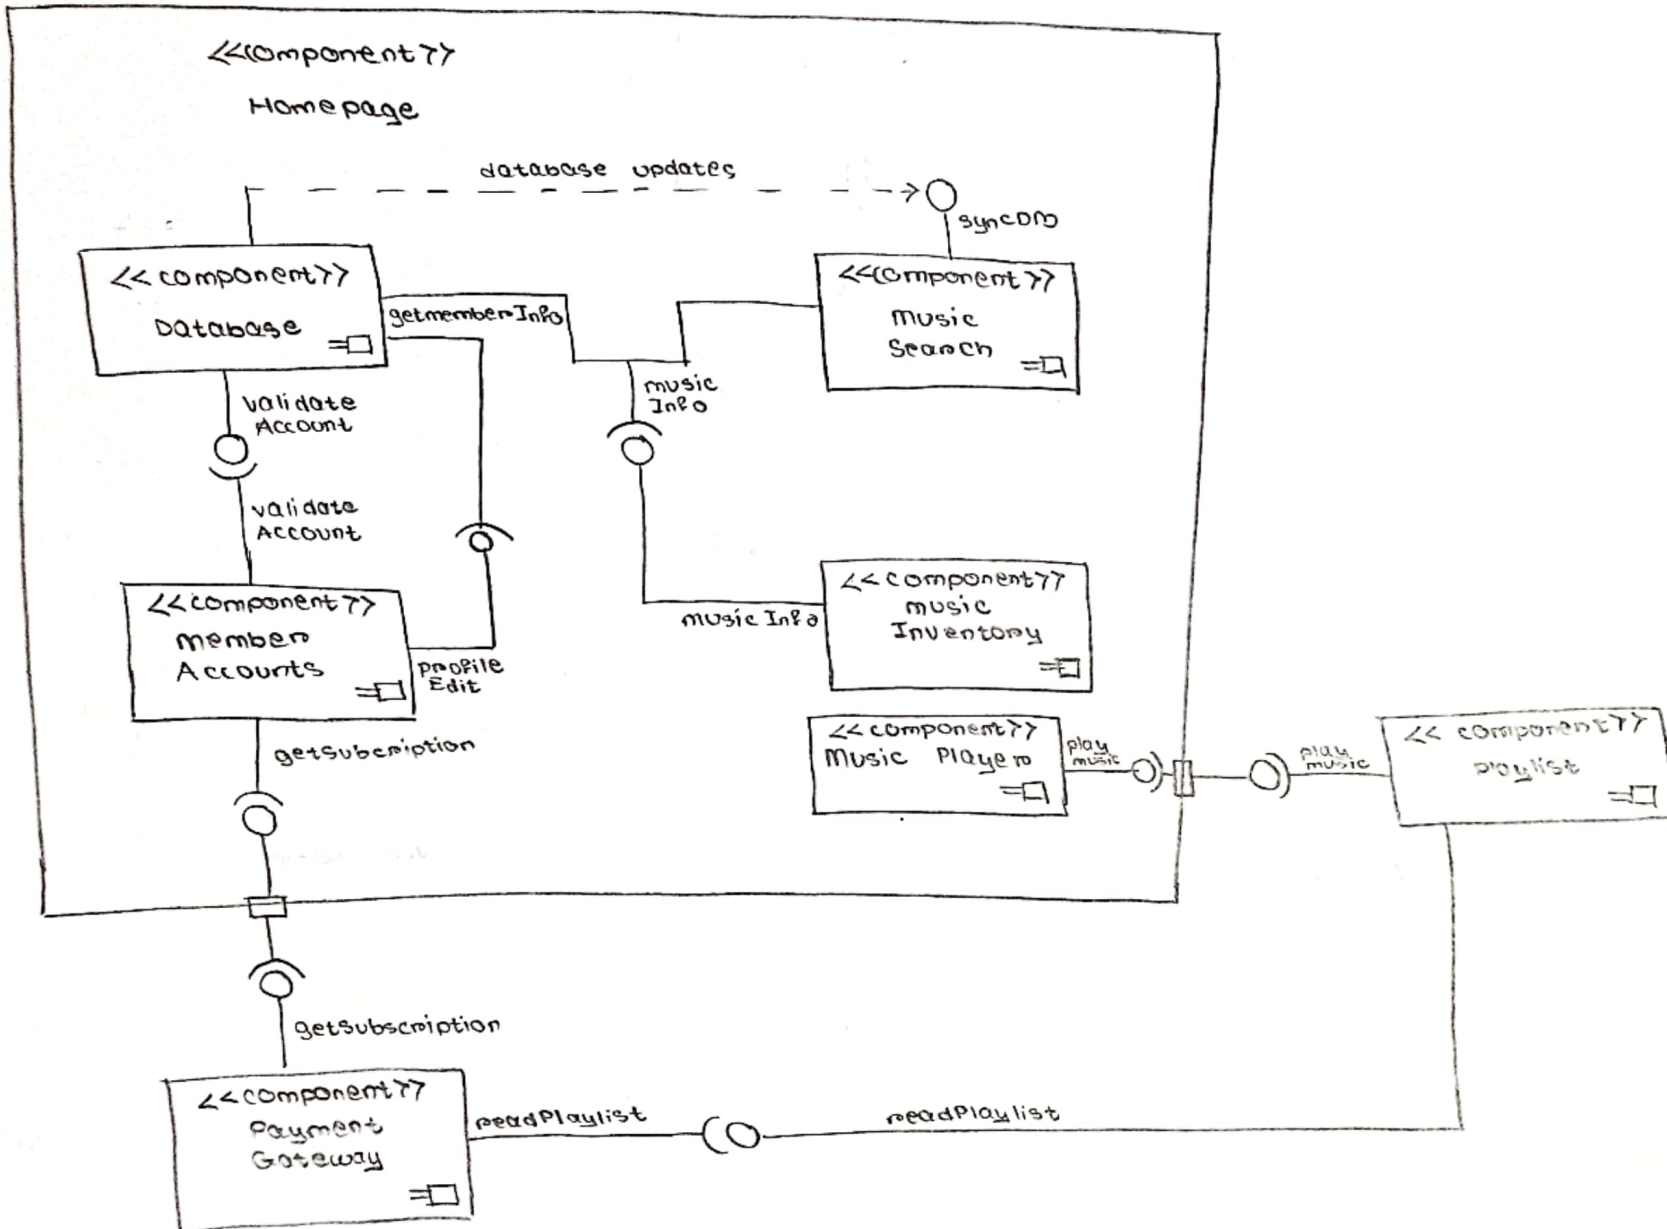 <<component>>
Homepage
database updates
syncDB
<<component>>
Database
getmemberInfo
<<component>>
Music
Search
validate
Account
music
Info
validate
Account
<<component>>
Member
Accounts
profile
Edit
music Info
<<component>>
music
Inventory
getsubcription
<<component>>
Music Player
play
music
play
music
<< component>>
Playlist
getsubscription
<<component>>
Payment
Gateway
readPlaylist
readPlaylist